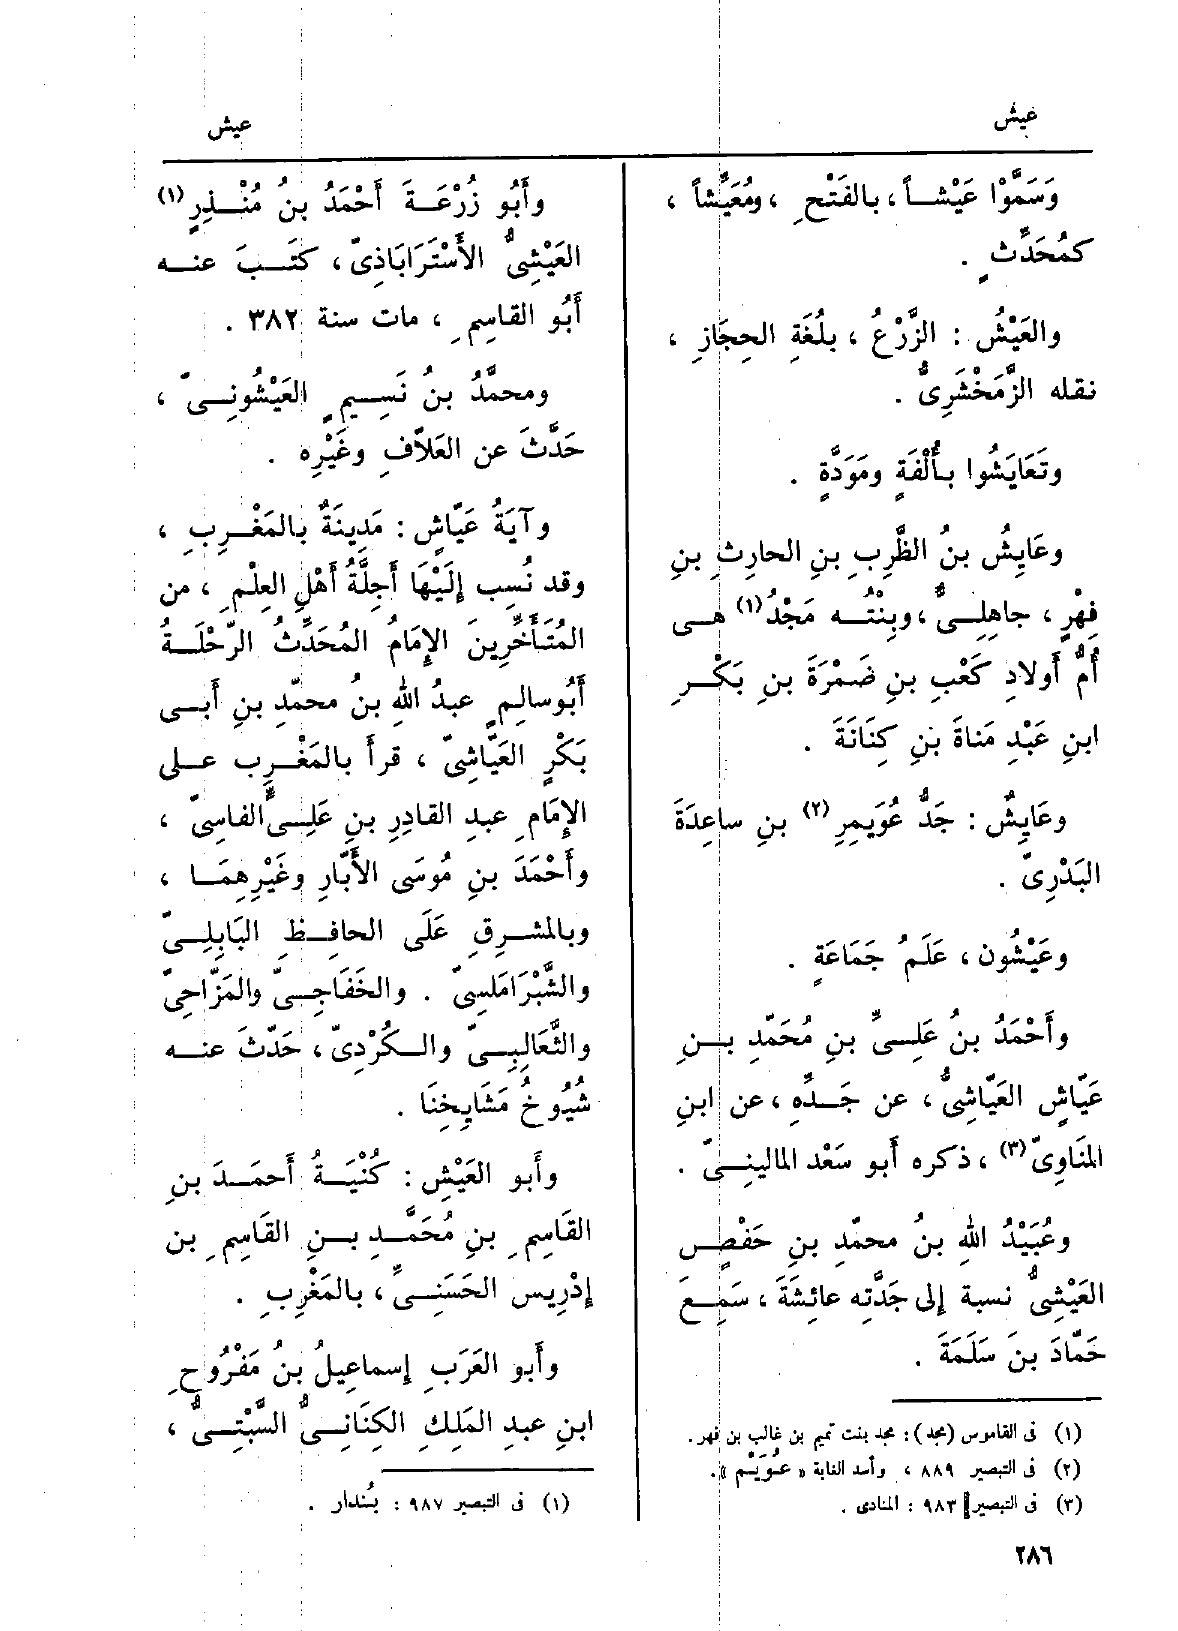 عيش
عيش
وَسَمَّوْا عَيْشاً، بالفَتْحِ، ومُعَيِّشاً،
كمُحَدِّثٍ .
والعَيْشُ : الزَّرْعُ ، بلُغَةِ الحِجَازِ ،
نقله الزَّمَخْشَرِىُّ .
وتَعَايَشُوا بأُلْفَةٍ ومَوَدَّةٍ .
وعَايِشُ بنُ الظَّرِبِ بنِ الحارِثِ بنِ
فِهْرٍ ، جاهِلِىٌّ ، وبِنْتُه مَجْدُ(١) هى
أُمُّ أَولادِ كَعْبِ بنِ ضَمْرَةَ بنِ بَكْرِ
ابنِ عَبْدِ مَناةَ بنِ كِنَانَةَ .
وعَايِشٌ : جَدُّ عُوَيمِرِ(٢) بنِ ساعِدَةَ
البَدْرِىّ .
وعَيْشُون، عَلَمُ جَمَاعَةٍ .
وأَحْمَدُ بنُ عَلِىِّ بنِ مُحَمّدِ بنِ
عَيّاشٍ العَيّاشِىُّ ، عن جَدِّهِ ، عن ابنِ
المَنَاوِىّ(٣) ، ذكره أَبو سَعْد المالِينِىّ .
وعُبَيْدُ اللهِ بنُ محمّدِ بنِ حَفْصٍ
العَيْشِىُّ نسبة إلى جَدَّتِه عائشَةَ ، سَمِعَ
حَمّادَ بنَ سَلَمَةَ .
(١) فى القاموس (مجد) : مجد بنت تميم بن غالب بن فهر .
(٢) فى التبصير ٨٨٩ ، وأسد الغابة « عُوَيْم » .
(٣) فى التبصير ٩٨٣ : المنادى .
وأَبُو زُرْعَةَ أَحْمَدُ بنُ مُنْذِرٍ(١)
العَيْشِىُّ الأَسْتَرَابَاذِىّ ، كتَبَ عنه
أَبُو القاسِمِ ، مات سنة ٣٨٢ .
ومحمَّدُ بنُ نَسِيمٍ العَيْشُونِىّ ،
حَدَّثَ عن العَلاّفِ وغَيْرِه .
وآيَةُ عَيّاشٍ : مَدِينَةٌ بالمَغْرِبِ ،
وقد نُسِب إِلَيْهَا أَجِلَّةُ أَهْلِ العِلْمِ ، من
المُتَأَخِّرِينَ الإِمَامُ المُحَدِّثُ الرِّحْلَةُ
أَبُو سالِمٍ عبدُ اللهِ بنُ محمّدِ بنِ أَبى
بَكْرٍ العَيّاشِىّ ، قرأَ بالمَغْرِبِ على
الإِمَامِ عبدِ القادِرِ بنِ عَلِىٍّ الفاسِىّ ،
وأَحْمَدَ بنِ مُوسَى الأَبّارِ وغَيْرِهِمَا ،
وبالمشرِقِ عَلَى الحافِظِ البَابِلِىّ
والشَّبْرَامَلسِىّ . والخَفَاجِىّ والمَزّاحِىّ
والثَّعَالِبِىّ والكُرْدِىّ ، حَدّثَ عنه
شُيُوخُ مَشَايِخِنَا .
وأَبو العَيْشِ : كُنْيَةُ أَحمَدَ بنِ
القَاسِمِ بنِ مُحَمَّدِ بنِ القَاسِمِ بن
إِدْرِيس الحَسَنِىِّ ، بالمَغْرِبِ .
وأَبو العَرَبِ إِسماعِيلُ بنُ مَفْرُوحِ
ابنِ عبدِ المَلِكِ الكِنَانِىُّ السَّبْتِىُّ ،
(١) فى التبصير ٩٨٧ : بُندار .
٢٨٦